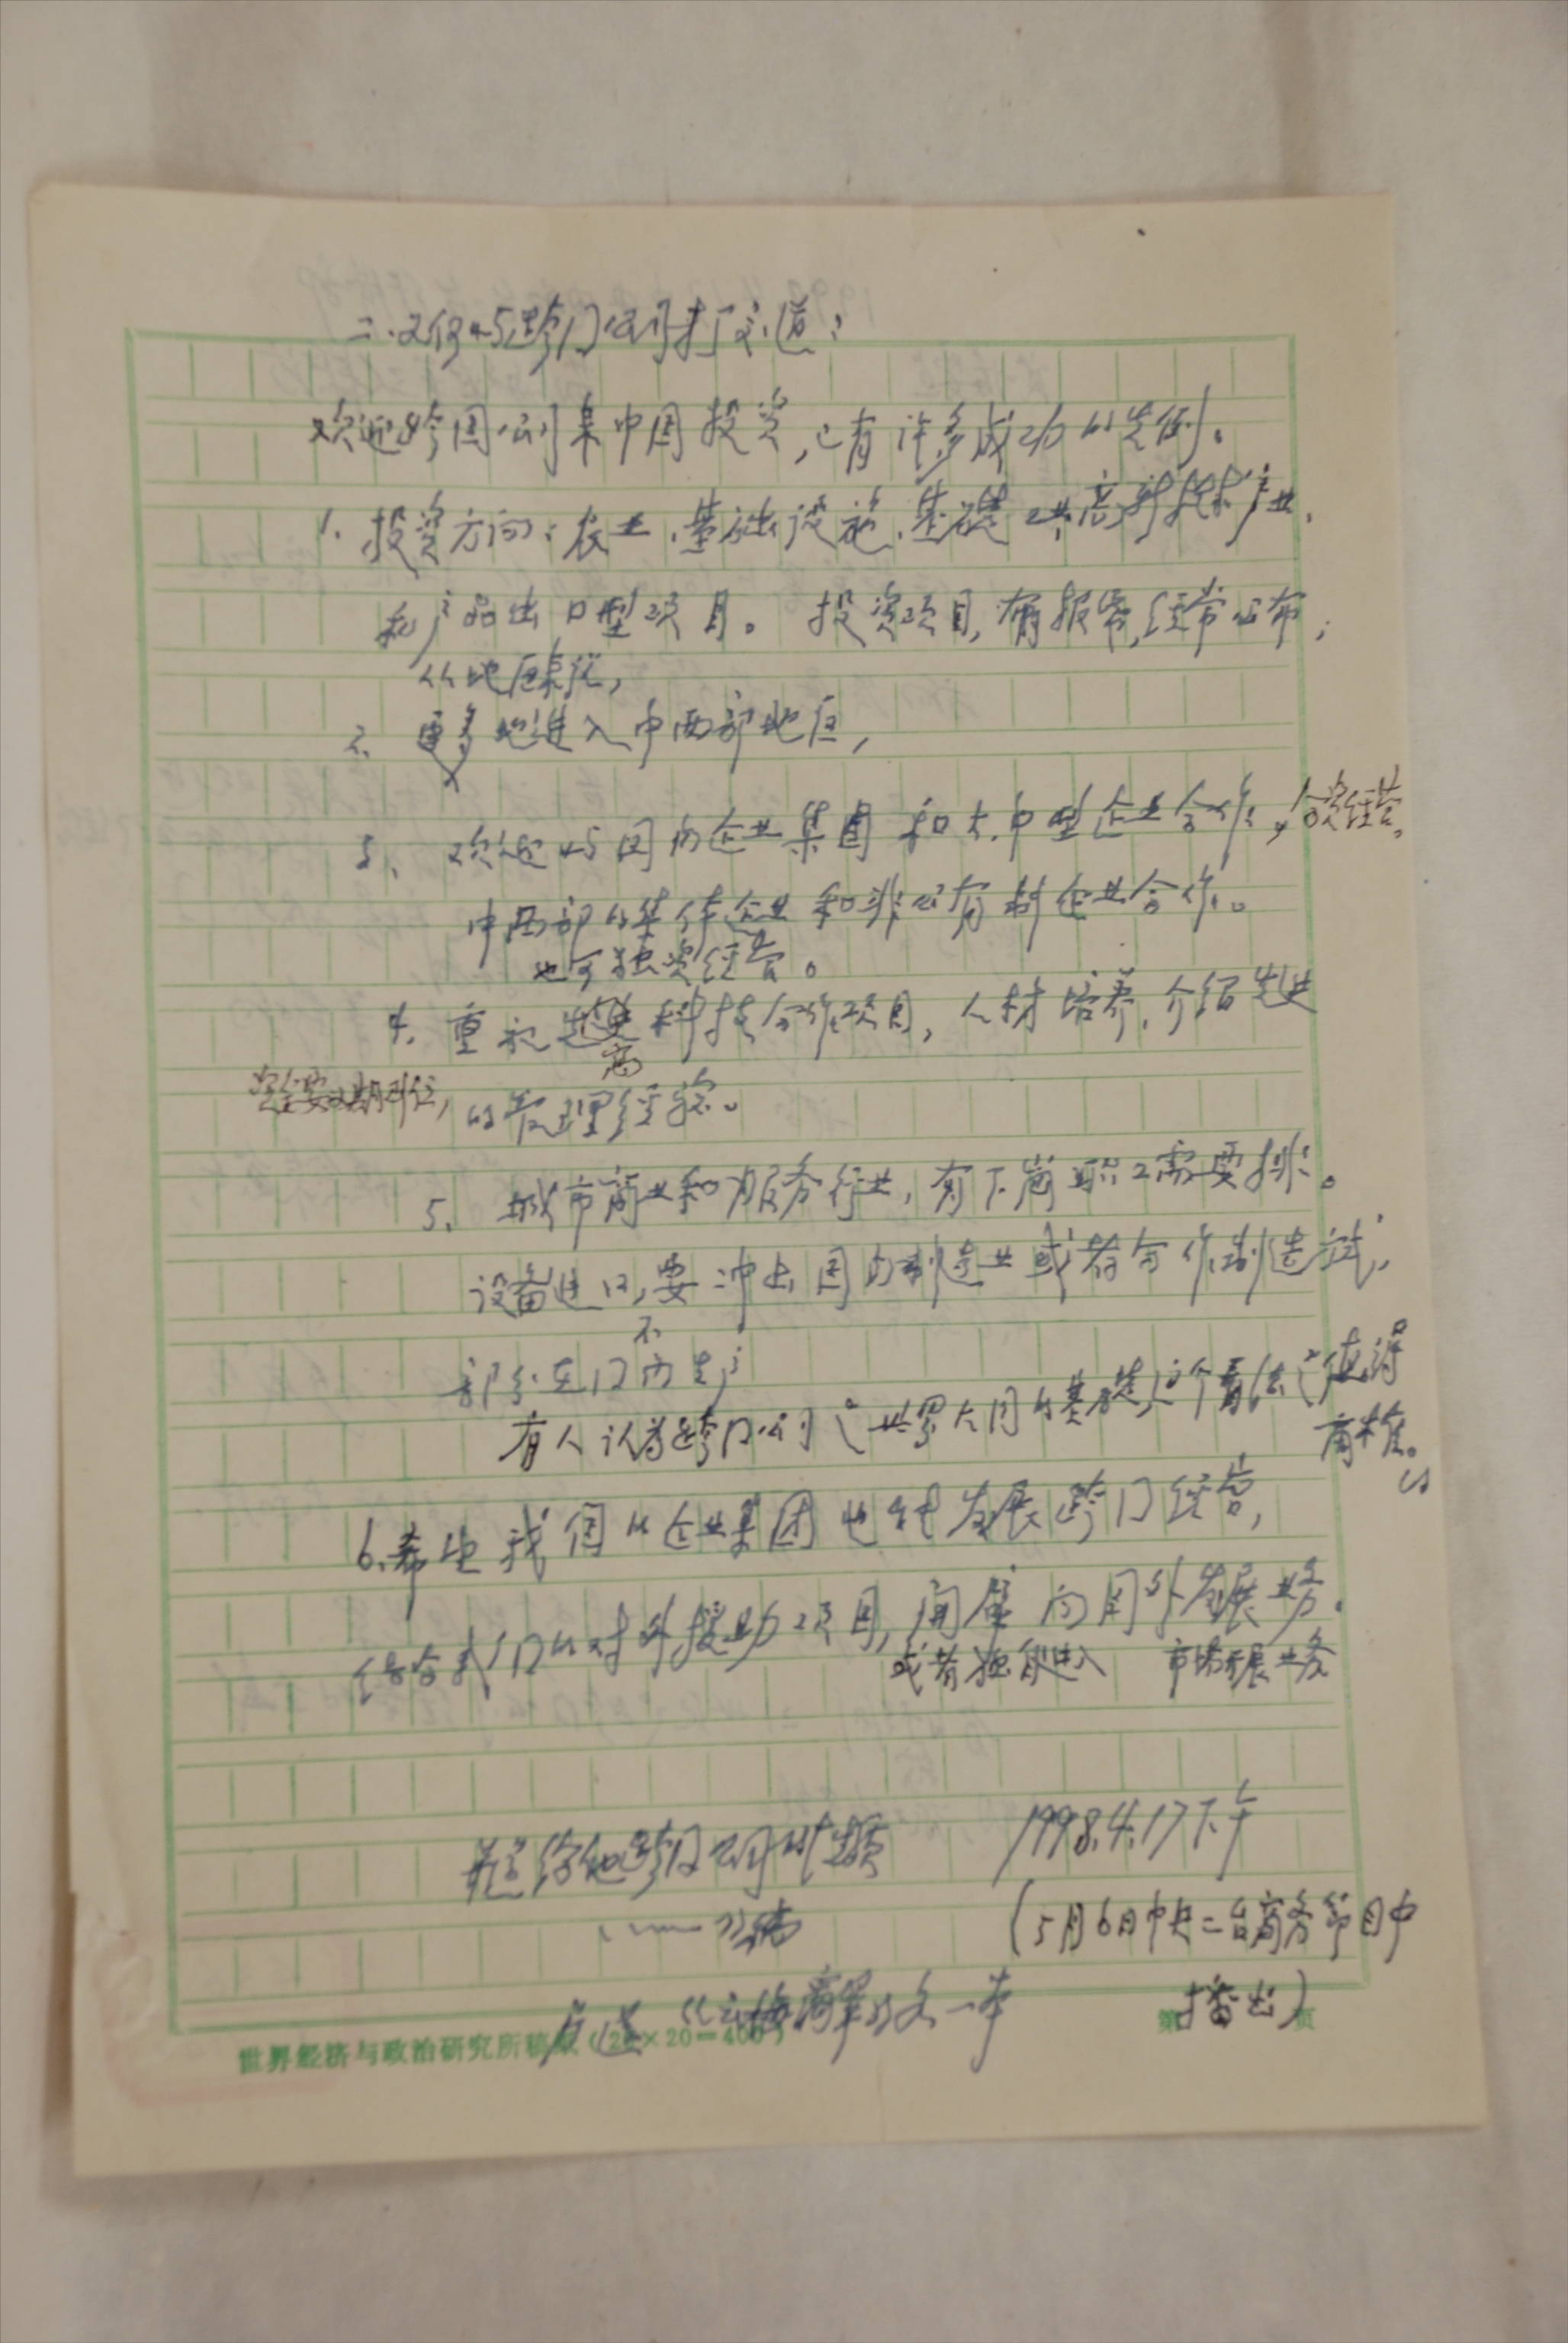 二、如何与跨国公司打交道:
欢迎跨国公司来中国投资,已有许多成功的先例。
1. 投资方向:农业、基础设施、基础工业、高新技术产业、
和产品出口型项目。 投资项目,有报导,经常公布,
从地区来说,
2. 更多地进入中西部地区,
3、 欢迎与国内企业集团和大、中型企业合作,合资经营。
中西部的集体企业和非公有制企业合作。
也可独资经营。
4. 重视 更高 科技合作项目,人材培养,介绍先进
资金要如期到位,
的管理经验。
5. 城市商业和服务行业,有下岗职工需要 排。
设备进口,不要冲击国内制造业或者合作制造 ,
部分在国内生产
有人认为跨国公司是世界大同的基础,这个看法是值得
商榷的。
6.希望我国的企业集团也能发展跨国经营,
结合我们的对外援助项目,开展向国外发展业务。
或者独自进入 市场开展业务
跨国公司 1998.4.17下午
(5月6日中央二台商务节目中
播出)
文一本
世界经济与政治研究所稿纸(20×20=400) 第 页